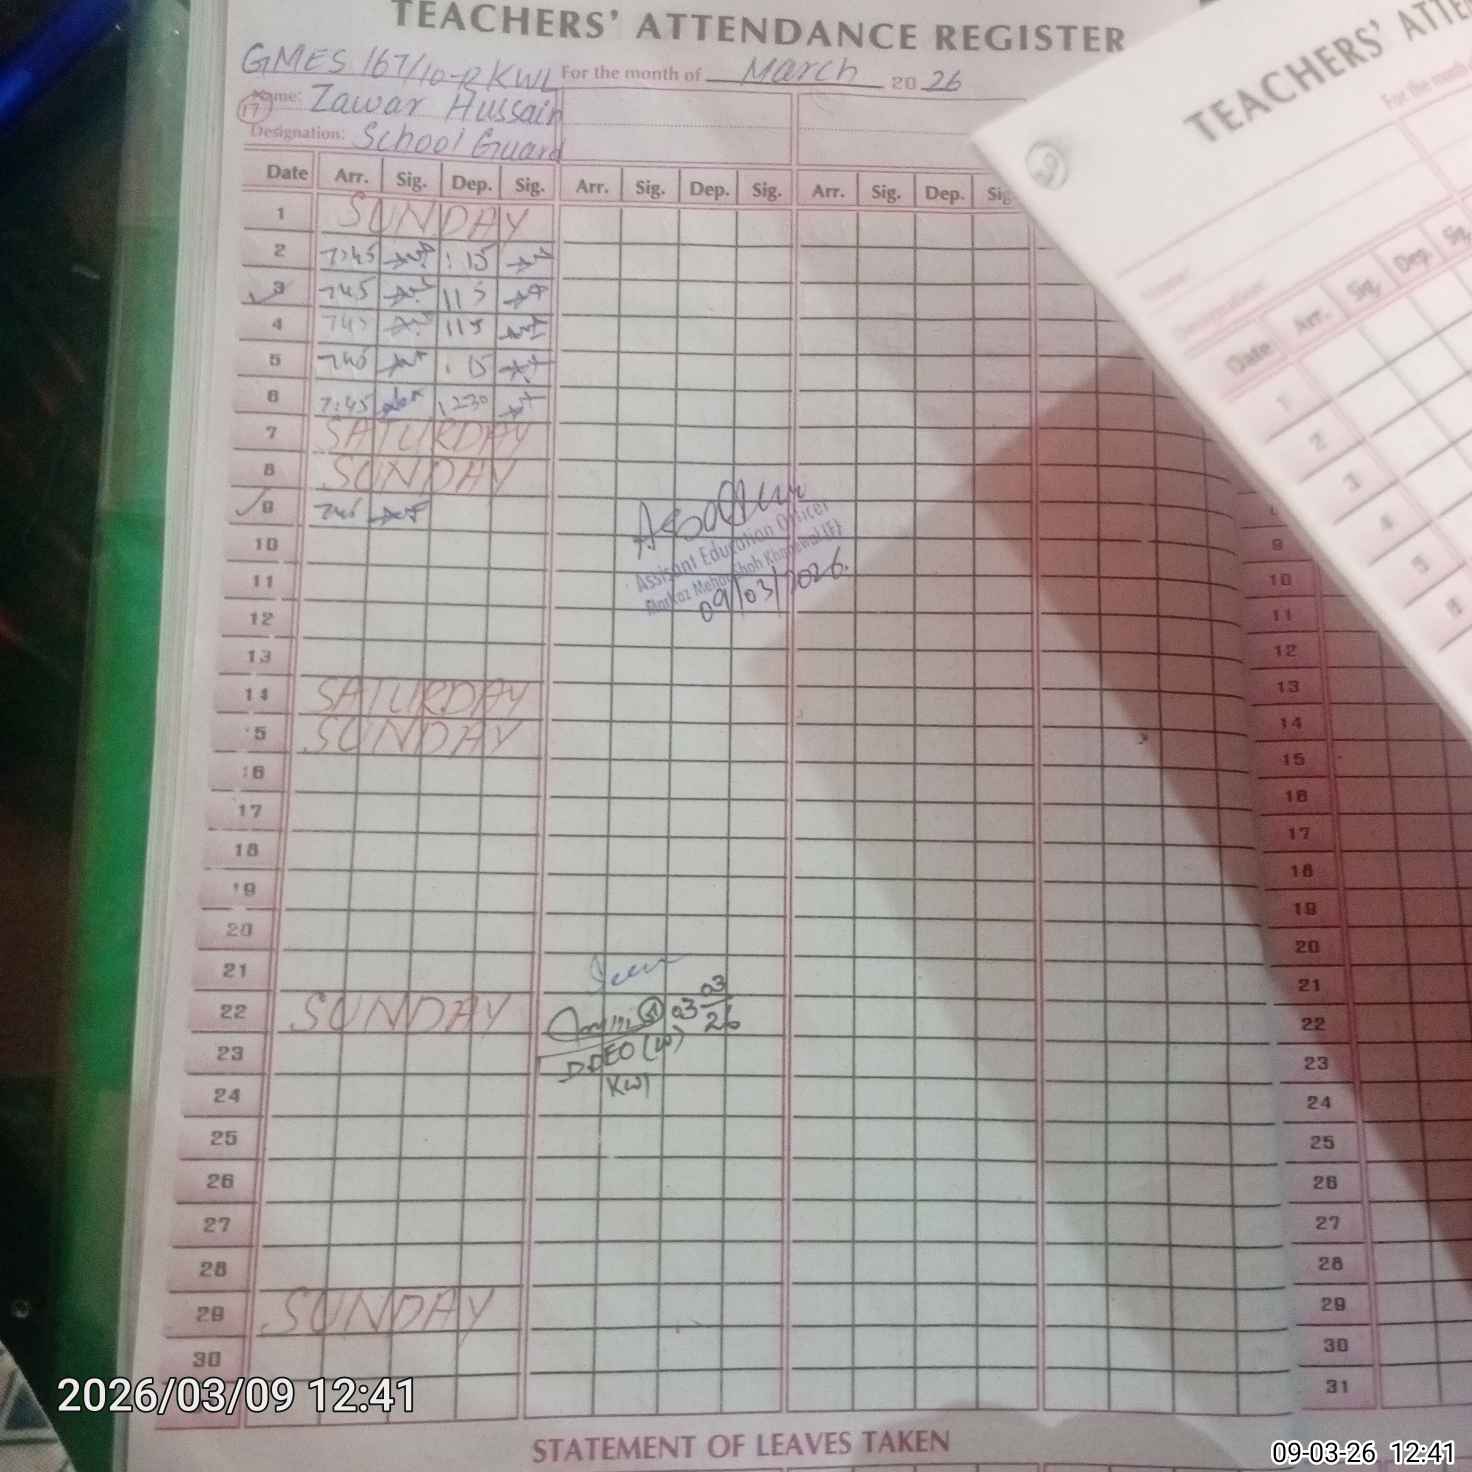 TEACHERS' ATTENDANCE REGISTER
GMES 167/10-R KWL For the month of March 2026
17 Name: Zawar Hussain
Designation: School Guard
Date Arr. Sig. Dep. Sig. Arr. Sig. Dep. Sig. Arr. Sig. Dep. Sig
1 SUNDAY
2 7:45 1:15
3 745 115
4 745 115
5 745 1:15
6 7:45 1230
7 SATURDAY
8 SUNDAY
9 745
10
11
12
13
14 SATURDAY
15 SUNDAY
16
17
18
19
20
21
22 SUNDAY
23
24
25
26
27
28
29 SUNDAY
30
Assistant Education Officer
Markaz Mehar Shah Khanewal (F)
09/03/2026.
Seen
03 03 26
DDEO (W)
KWL
STATEMENT OF LEAVES TAKEN
TEACHERS' ATTE
For the month
Name:
Designation:
Date Arr. Sig. Dep. Sig.
1
2
3
4
5
6
9
10
11
12
13
14
15
16
17
18
19
20
21
22
23
24
25
26
27
28
29
30
31
2026/03/09 12:41
09-03-26 12:41